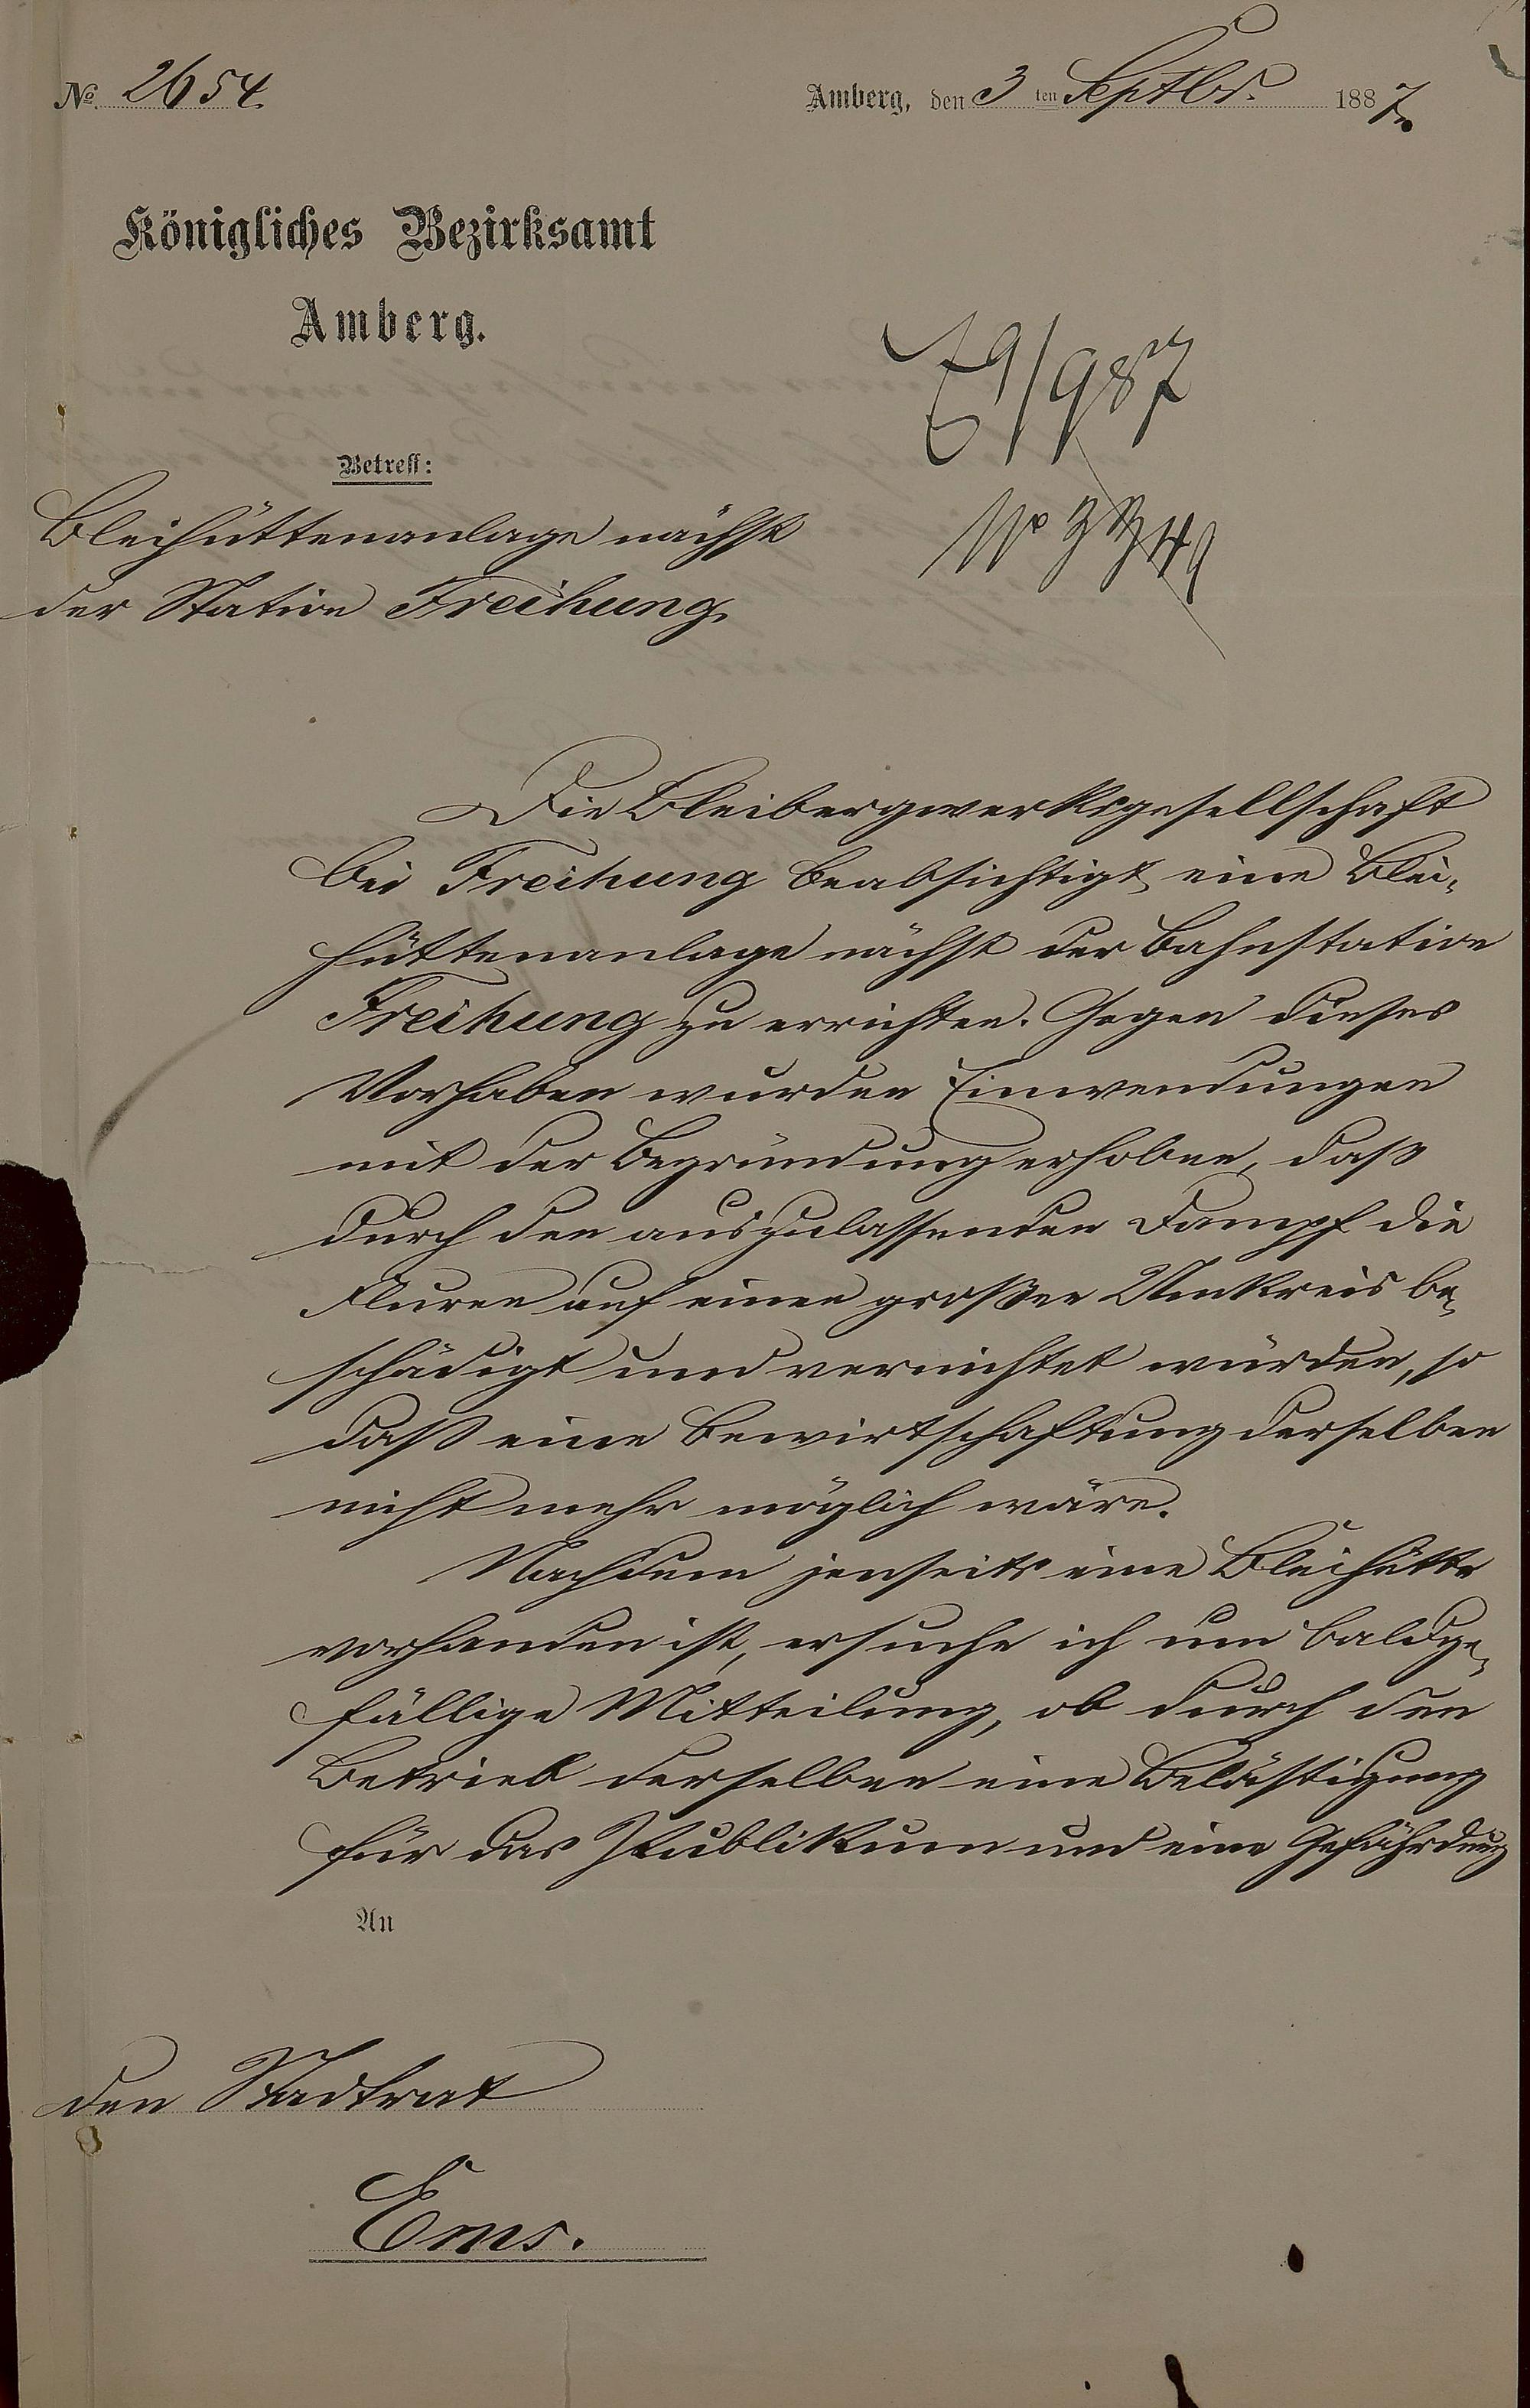 No. 2654.
Amberg, den 3ten Septbr. 1887.
Königliches Bezirksamt
Amberg.
E 9/9 87
No
Betreff:
Bleihüttenanlage nächst
der Station Freihung.
Die Bleibergwerksgesellschaft
bei Freihung beabsichtigt eine Blei-
hüttenanlage nächst der Bahnstation
Freihung zu errichten. Gegen dieses
Vorhaben wurden Einwendungen
mit der Begründung erhoben, daß
durch den auszulassenden Dampf die
Fluren auf einen großen Umkreis be-
schädigt und vernichtet würden, so
daß eine Bewirtschaftung derselben
nicht mehr möglich wäre.
Nachdem jenseits eine Bleihütte
vorhanden ist, ersuche ich um baldge-
fällige Mitteilung, ob durch den
Betrieb derselben eine Belästigung
für das Publikum und eine Gefährdung
An
den Stadtrat
Ems.